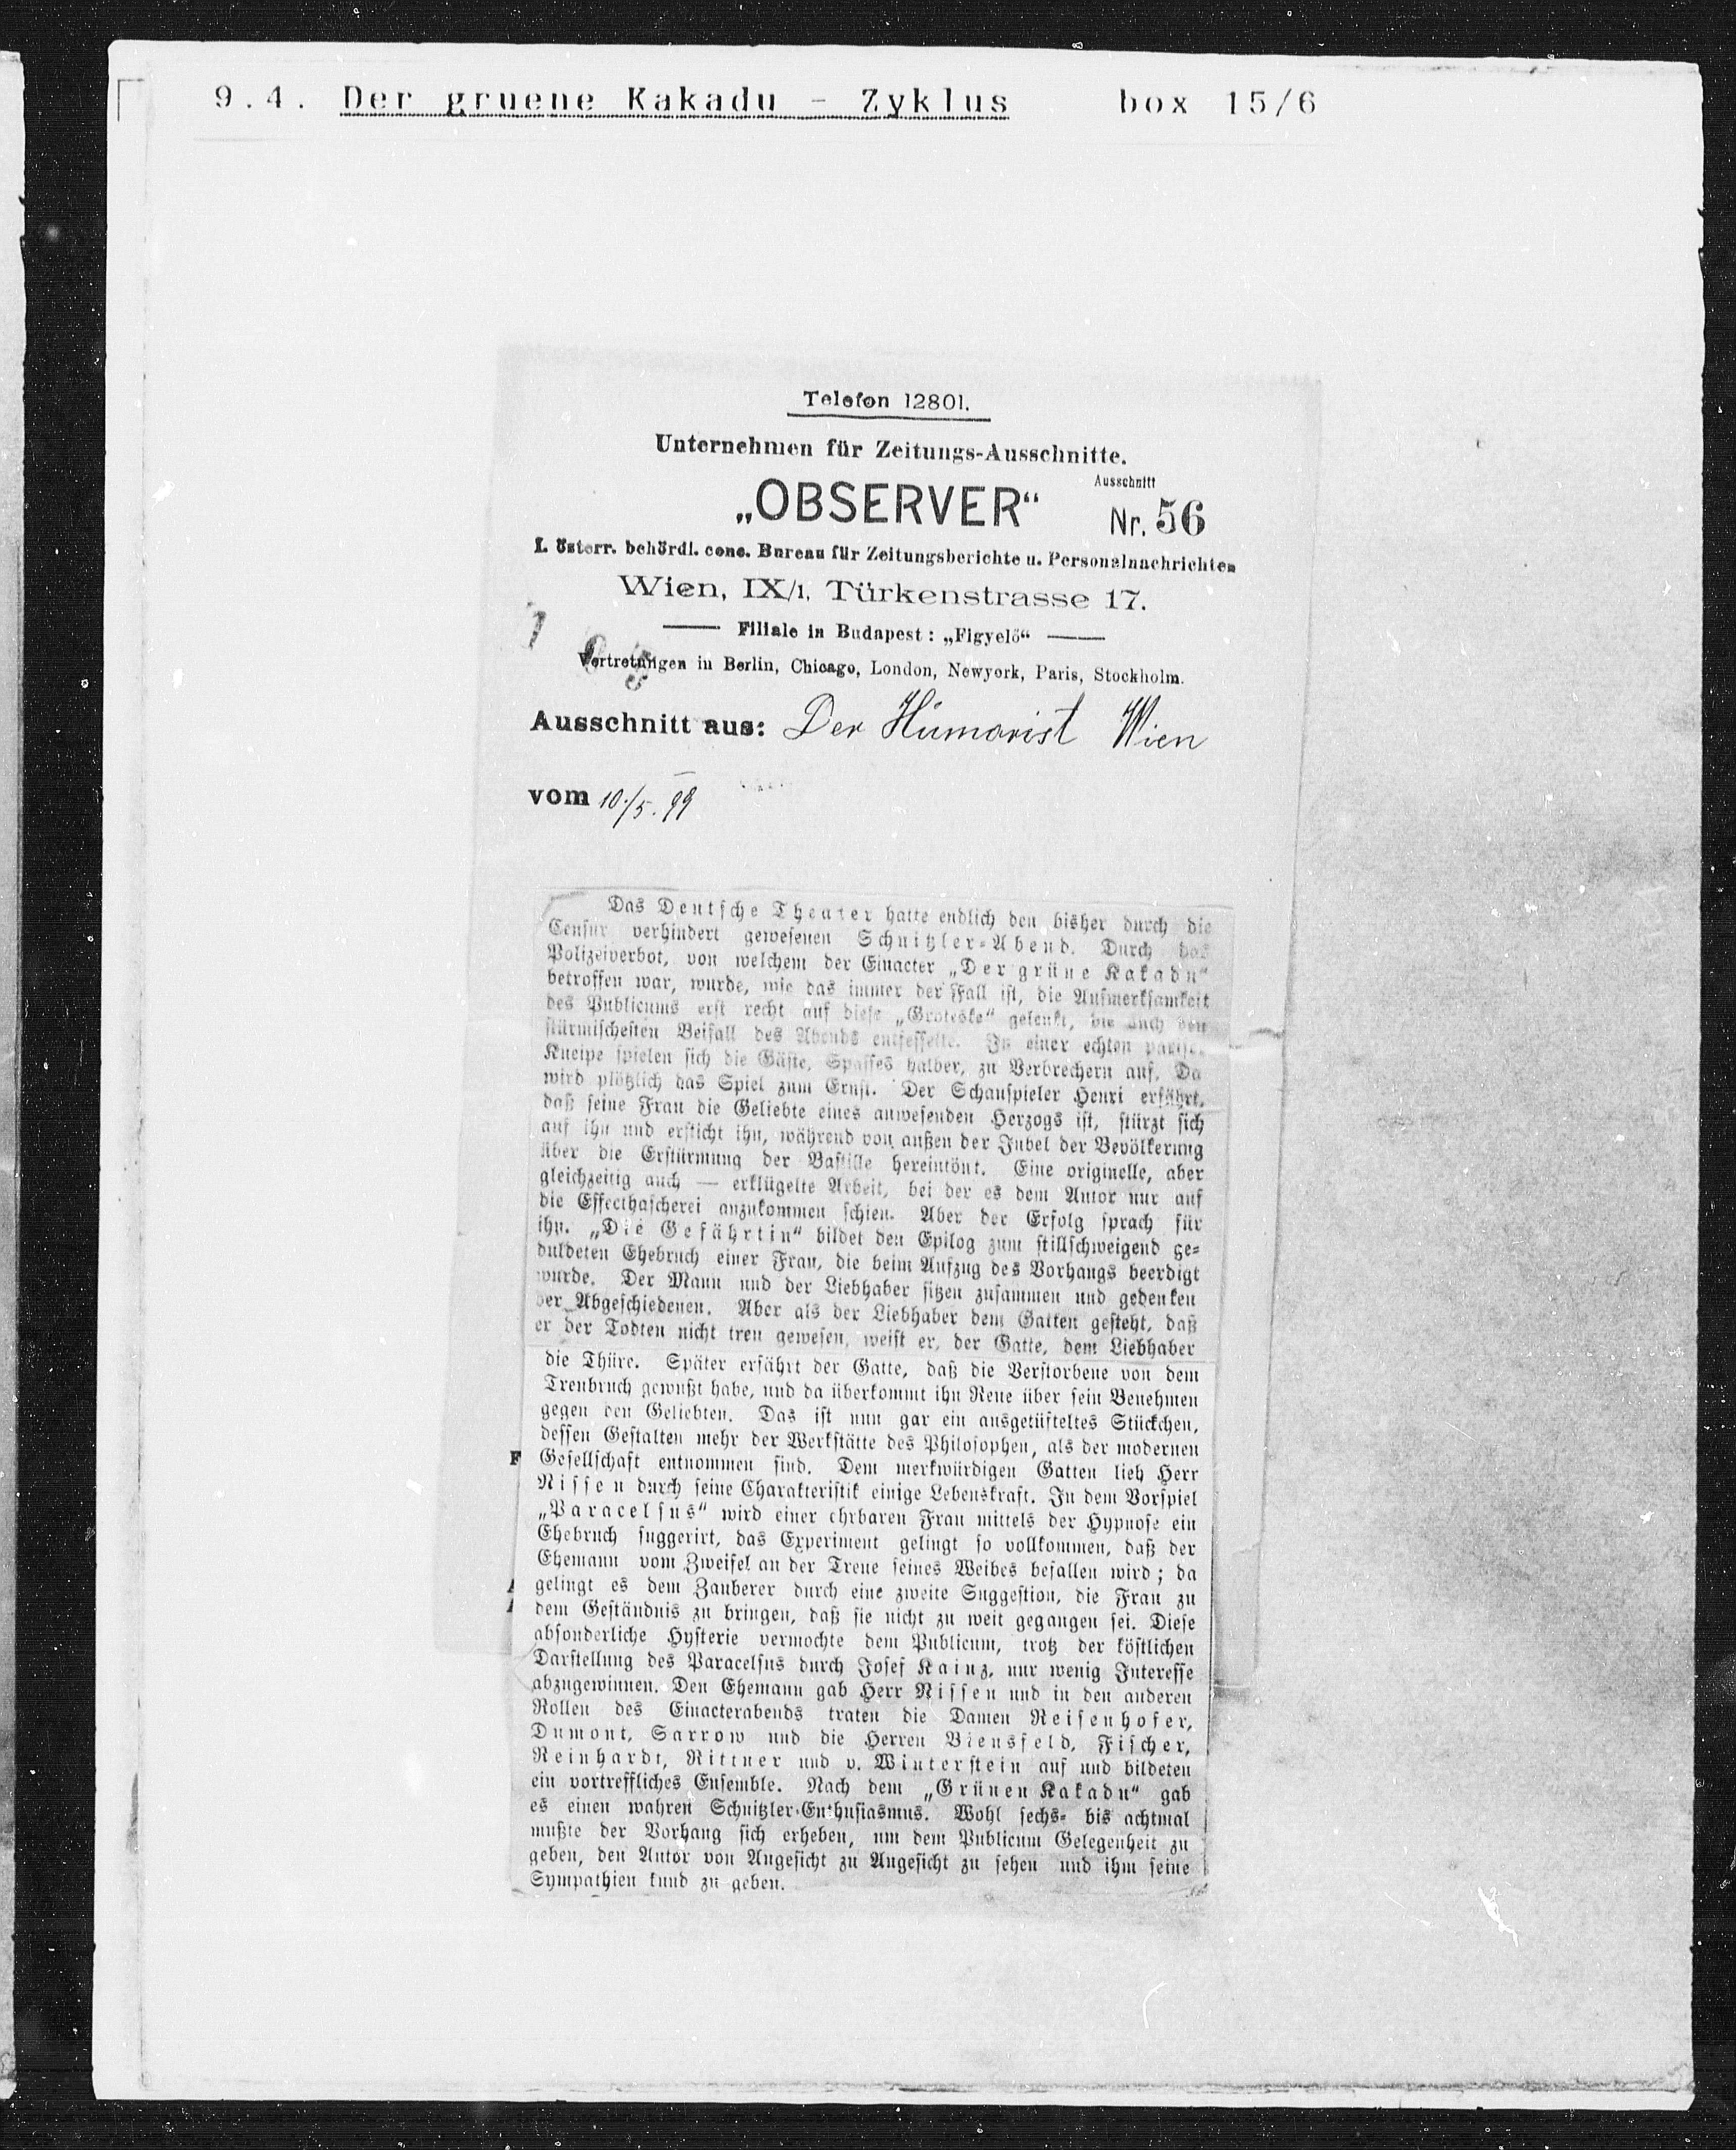 9.4. Der gruene Kakadu - Zyklus box 15/6
Telefon 12801.
Unternehmen für Zeitungs-Ausschnitte.
Ausschnitt
„OBSERVER“ Nr. 56
I. österr. behördl. conc. Bureau für Zeitungsberichte u. Personalnachrichten
Wien, IX/1, Türkenstrasse 17.
Filiale in Budapest: „Figyelő“
Vertretungen in Berlin, Chicago, London, Newyork, Paris, Stockholm.
Ausschnitt aus: Der Humorist Wien
vom 10./5. 99
Das Deutsche Theater hatte endlich den bisher durch die
Censur verhindert gewesenen Schnitzler-Abend. Durch das
Polizeiverbot, von welchem der Einacter „Der grüne Kakadu“
betroffen war, wurde, wie das immer der Fall ist, die Aufmerksamkeit
des Publicums erst recht auf diese „Groteske“ gelenkt, die auch den
stürmischesten Beifall des Abends entfesselte. In einer echten pariser
Kneipe spielen sich die Gäste, Spasses halber, zu Verbrechern auf. Da
wird plötzlich das Spiel zum Ernst. Der Schauspieler Henri erfährt,
daß seine Frau die Geliebte eines anwesenden Herzogs ist, stürzt sich
auf ihn und ersticht ihn, während von außen der Jubel der Bevölkerung
über die Erstürmung der Bastille hereintönt. Eine originelle, aber
gleichzeitig auch — erklügelte Arbeit, bei der es dem Autor nur auf
die Effecthascherei anzukommen schien. Aber der Erfolg sprach für
ihn. „Die Gefährtin“ bildet den Epilog zum stillschweigend ge-
duldeten Ehebruch einer Frau, die beim Aufzug des Vorhangs beerdigt
wurde. Der Mann und der Liebhaber sitzen zusammen und gedenken
der Abgeschiedenen. Aber als der Liebhaber dem Gatten gesteht, daß
er der Todten nicht treu gewesen, weist er, der Gatte, dem Liebhaber
die Thüre. Später erfährt der Gatte, daß die Verstorbene von dem
Treubruch gewußt habe, und da überkommt ihn Reue über sein Benehmen
gegen den Geliebten. Das ist nun gar ein ausgetüfteltes Stückchen,
dessen Gestalten mehr der Werkstätte des Philosophen, als der modernen
Gesellschaft entnommen sind. Dem merkwürdigen Gatten lieh Herr
Nissen durch seine Charakteristik einige Lebenskraft. In dem Vorspiel
„Paracelsus“ wird einer ehrbaren Frau mittels der Hypnose ein
Ehebruch suggerirt, das Experiment gelingt so vollkommen, daß der
Ehemann vom Zweifel an der Treue seines Weibes befallen wird; da
gelingt es dem Zauberer durch eine zweite Suggestion, die Frau zu
dem Geständnis zu bringen, daß sie nicht zu weit gegangen sei. Diese
absonderliche Hysterie vermochte dem Publicum, trotz der köstlichen
Darstellung des Paracelsus durch Josef Kainz, nur wenig Interesse
abzugewinnen. Den Ehemann gab Herr Nissen und in den anderen
Rollen des Einacterabends traten die Damen Reisenhofer,
Dumont, Sarrow und die Herren Biensfeld, Fischer,
Reinhardt, Rittner und v. Winterstein auf und bildeten
ein vortreffliches Ensemble. Nach dem „Grünen Kakadu“ gab
es einen wahren Schnitzler-Enthusiasmus. Wohl sechs- bis achtmal
mußte der Vorhang sich erheben, um dem Publicum Gelegenheit zu
geben, den Autor von Angesicht zu Angesicht zu sehen und ihm seine
Sympathien kund zu geben.